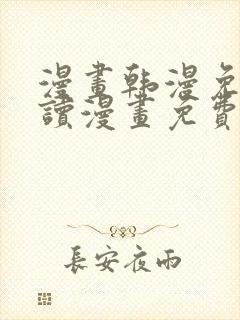 漫畫韩漫免
讀漫畫免費
長安夜雨